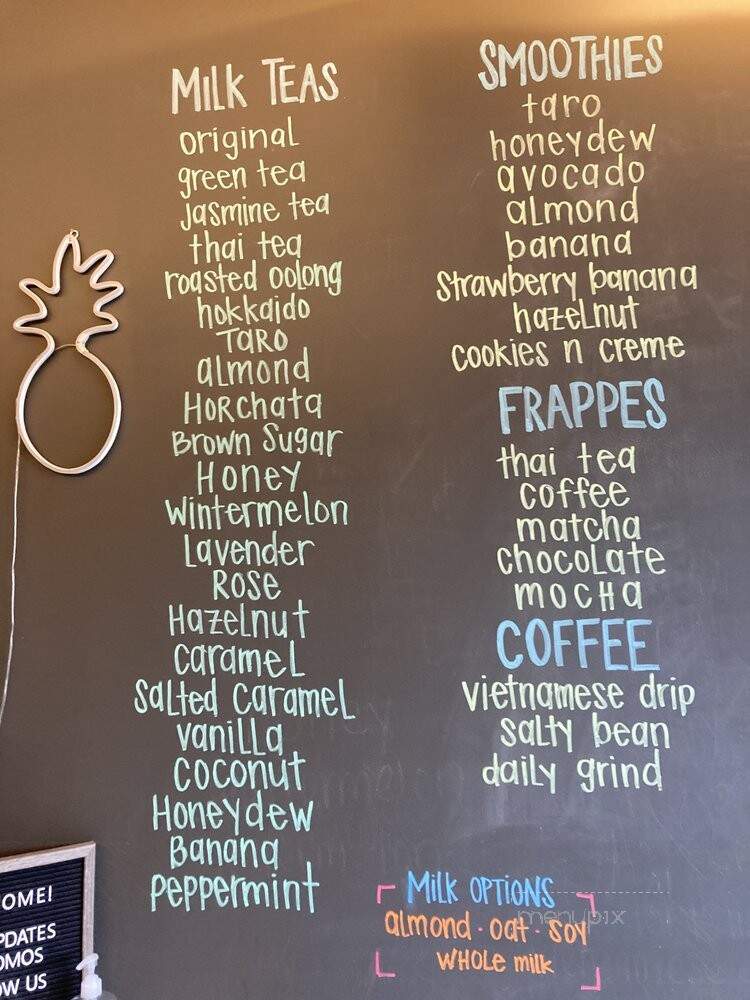 MILK TEAS
original
green tea
Jasmine tea
thai tea
roasted oolong
hokkaido
TARO
almond
HORCHATA
Brown Sugar
Honey
Wintermelon
Lavender
ROSE
Hazelnut
Caramel
Salted Caramel
vanilla
coconut
Honeydew
Banana
peppermint
SMOOTHIES
taro
honeydew
avocado
almond
banana
Strawberry banana
hazelnut
cookies n creme
FRAPPES
thai tea
coffee
matcha
chocolate
mocha
COFFEE
vietnamese drip
salty bean
daily grind
MILK OPTIONS
almond · oat · soy
WHOLE milk
menupix
OME!
PDATES
OMOS
OW US